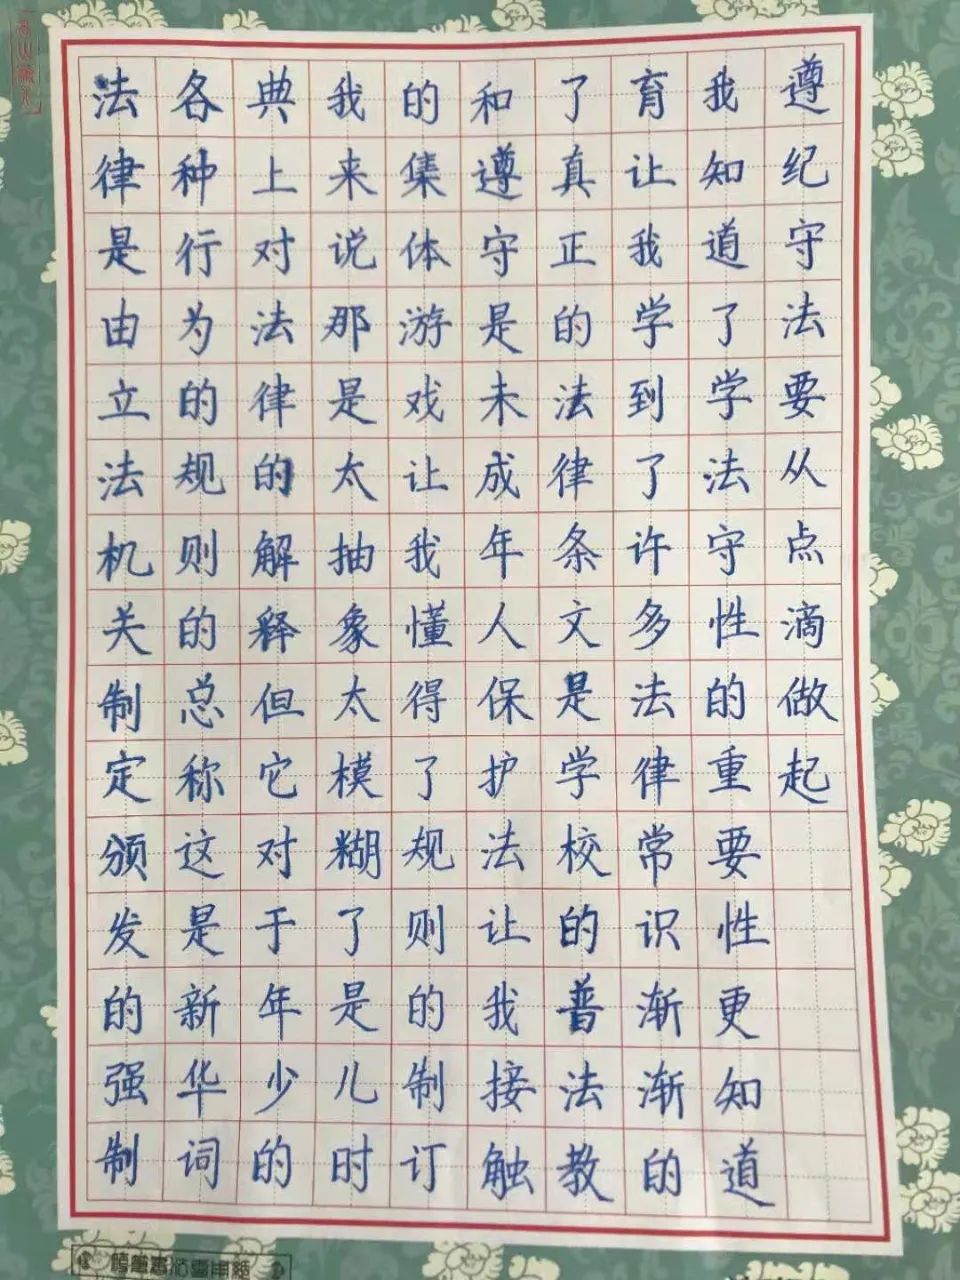 法律是由立法机关制定颁发的强制
各种行为的规则的总称这是新华词
典上对法律的解释但它对于年少的
我来说那是太抽象太模糊了是儿时
的集体游戏让我懂得了规则的制订
和遵守是未成年人保护法让我接触
了真正的法律条文是学校的普法教
育让我学到了许多法律常识渐渐的
我知道了学法守性的重要性更知道
遵纪守法要从点滴做起